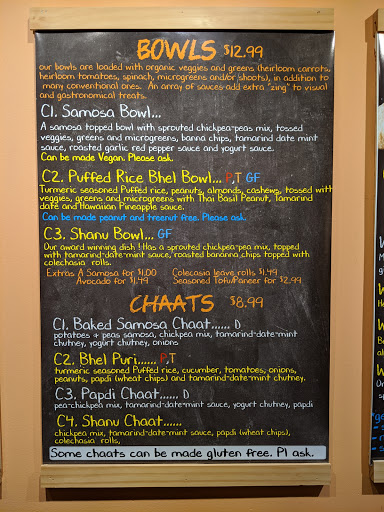 BOWLS $12.99
our bowls are loaded with organic veggies and greens (heirloom carrots,
heirloom tomatoes, spinach, microgreens and/or shoots), in addition to
many conventional ones. An array of sauces add extra "zing" to visual
and gastronomical treats.
C1. Samosa Bowl...
A samosa topped bowl with sprouted chickpea-peas mix, tossed
veggies, greens and microgreens, banna chips, tamarind date mint
sauce, roasted garlic red pepper sauce and yogurt sauce.
Can be made Vegan. Please ask.
C2. Puffed Rice Bhel Bowl... P,T GF
Turmeric seasoned Puffed rice, peanuts, almonds, cashews, tossed with
veggies, greens and microgreens with Thai Basil Peanut, Tamarind
date and Hawaiian Pineapple sauce.
Can be made peanut and treenut free. Please ask.
C3. Shanu Bowl... GF
Our award winning dish ! Has a sprouted chickpea-pea mix, topped
with tamarind-date-mint sauce, roasted bananna chips topped with
colechasia rolls.
Extras A Samosa for $1.00 Colecasia leave rolls $1.49
Avocado for $1.49 Seasoned Tofu/Paneer for $2.99
CHAATS $8.99
C1. Baked Samosa Chaat...... D
potatoes & peas samosa, chickpea mix, tamarind-date-mint
chutney, yogurt chutney, onions
C2. Bhel Puri...... P,T
turmeric seasoned Puffed rice, cucumber, tomatoes, onions,
peanuts, papdi (wheat chips) and tamarind-date-mint chutney.
C3. Papdi Chaat...... D
pea-chickpea mix, tamarind-date-mint sauce, yogurt chutney, papdi
C4. Shanu Chaat......
chickpea mix, tamarind-date-mint sauce, papdi (wheat chips),
colechasia rolls,
Some chaats can be made gluten free. Pl ask.